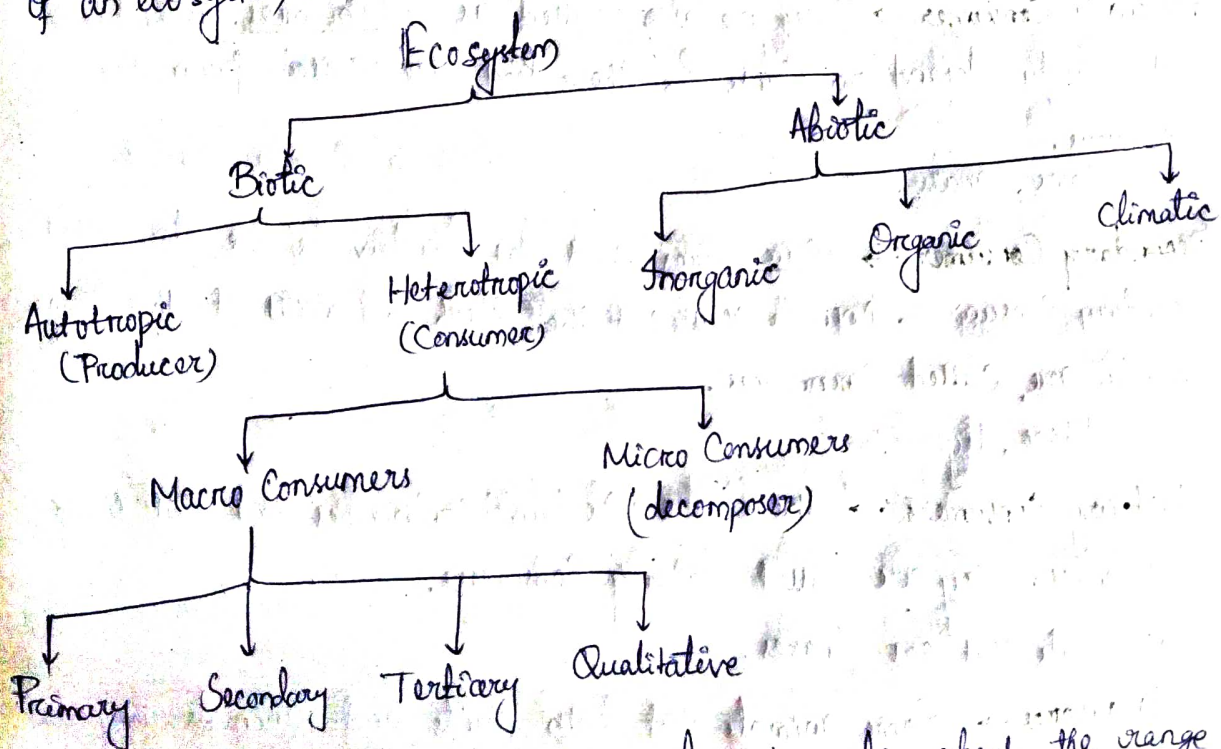 of an
Ecosystem
Biotic
Abiotic
Autotropic
(Producer)
Heterotropic
(Consumer)
Inorganic
Organic
Climatic
Macro Consumers
Micro Consumers
(decomposer)
Primary
Secondary
Tertiary
Qualitative
the range